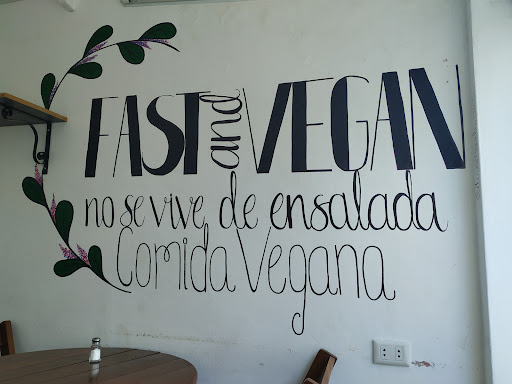 FAST and VEGAN
no se vive de ensalada
Comida Vegana